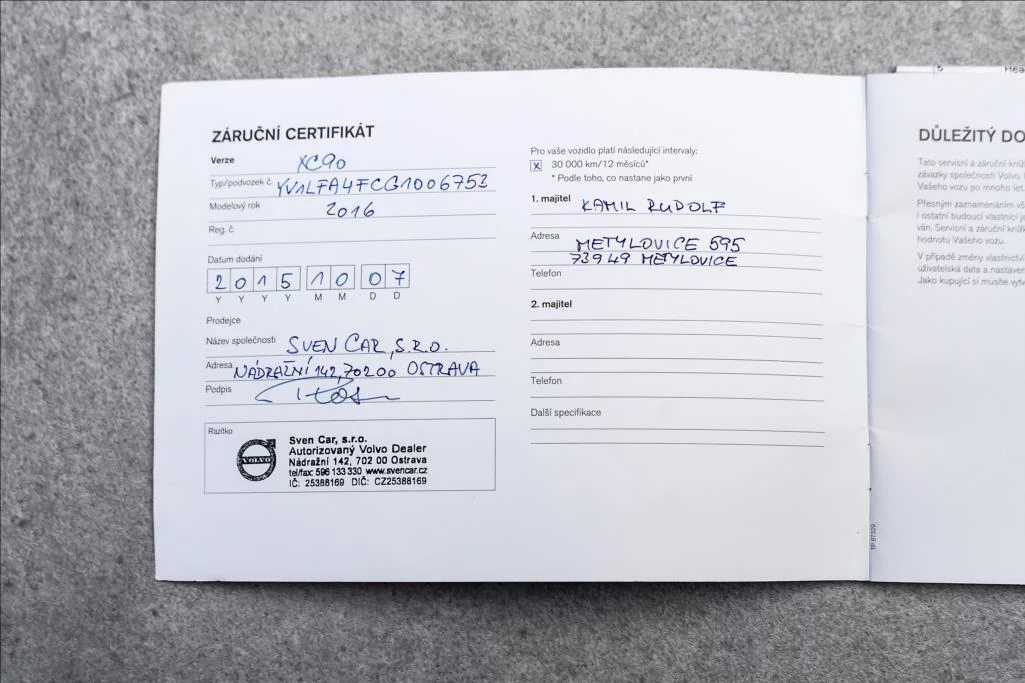 ZÁRUČNÍ CERTIFIKÁT
Verze XC90
Typ/podvozek č. YV1LFA4FCG1006753
Modelový rok 2016
Reg. č.
Datum dodání
2 0 1 5 1 0 0 7
Y Y Y Y M M D D
Prodejce
Název společnosti SVEN CAR, S.R.O.
Adresa NÁDRAŽNÍ 142, 70200 OSTRAVA
Podpis
Razítko
VOLVO
Sven Car, s.r.o.
Autorizovaný Volvo Dealer
Nádražní 142, 702 00 Ostrava
tel/fax: 596 133 330 www.svencar.cz
IČ: 25388169 DIČ: CZ25388169
Pro vaše vozidlo platí následující intervaly:
X 30 000 km/12 měsíců*
* Podle toho, co nastane jako první
1. majitel KAMIL RUDOLF
Adresa METYLOVICE 595
73949 METYLOVICE
Telefon
2. majitel
Adresa
Telefon
Další specifikace
TP 87329
DŮLEŽITÝ DO
Tato servisní a záruční kníž
závazky společnosti Volvo.
Vašeho vozu po mnoho let.
Přesným zaznamenáním vš
i ostatní budoucí vlastníci j
ván. Servisní a záruční kníž
hodnotu Vašeho vozu.
V případě změny vlastnictví
uživatelská data a nastaven
Jako kupující si musíte vytv